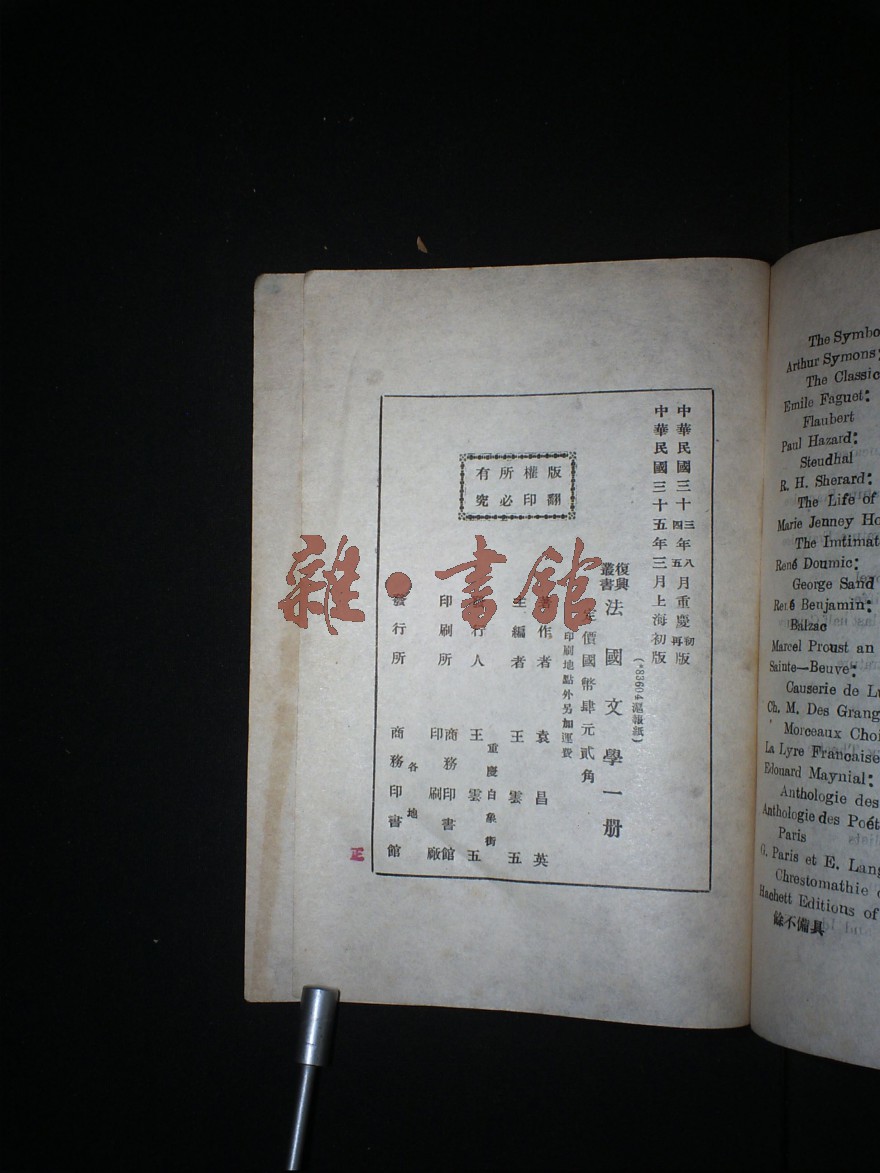 中華民國三十三年八月重慶初版
中華民國三十四年五月重慶再版
中華民國三十五年三月上海初版
復興叢書
法國文學一册
(*83604滬報紙)
定價國幣肆元貳角
印刷地點外另加運費
著作者 袁昌英
主編者 王雲五
重慶白象街
發行人 王雲五
印刷所 商務印書館印刷廠
各地
發行所 商務印書館
版權所有
翻印必究
正
雜·書館
The Symbo
Arthur Symons;
The Classic
Emile Faguet:
Flaubert
Paul Hazard:
Steudhal
R. H. Sherard:
The Life of
Marie Jenney Ho
The Imtimat
René Doumic:
George Sand
René Benjamin:
Balzac
Marcel Proust an
Sainte—Beuve:
Causerie de Lu
Ch. M. Des Grang
Morceaux Choi
La Lyre Francaise
Edouard Maynial:
Anthologie des
Anthologie des Poét
Paris
G. Paris et E. Lang
Chrestomathie
Hachett Editions of
餘不備具